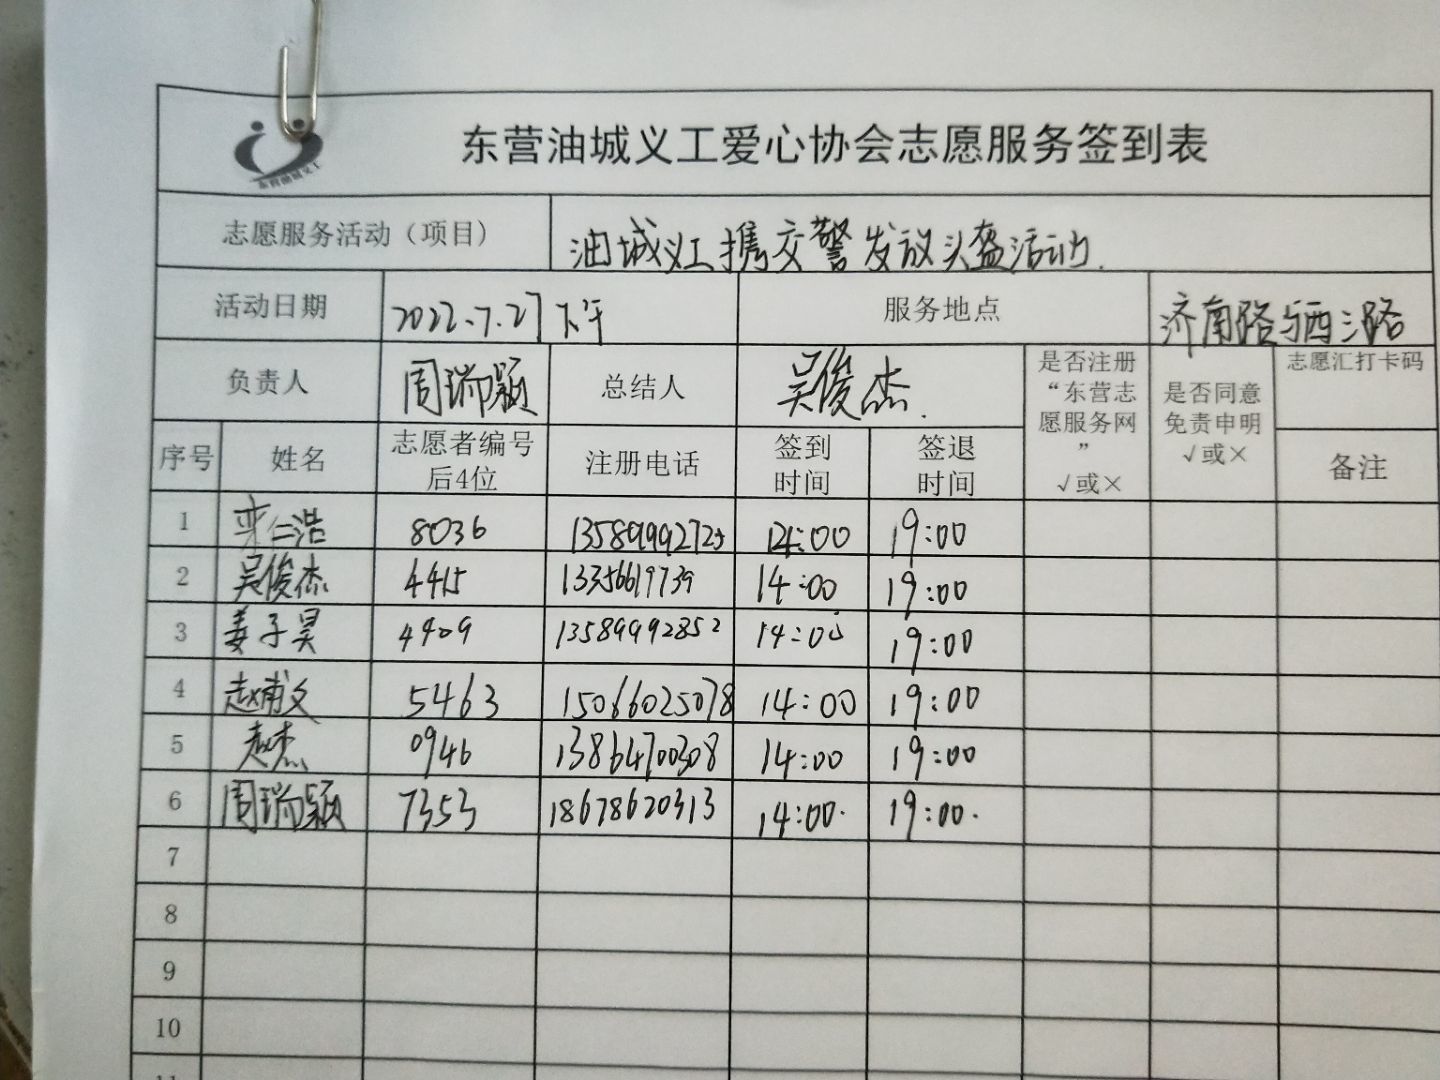 东营油城义工爱心协会志愿服务签到表
东营油城义工
志愿服务活动（项目） 油城义工携交警发放头盔活动.
活动日期 2022.7.27下午 服务地点 济南路与西三路
负责人 周瑞颖 总结人 吴俊杰. 是否注册“东营志愿服务网” √或× 是否同意免责申明 √或× 志愿汇打卡码
序号 姓名 志愿者编号后4位 注册电话 签到时间 签退时间 备注
1 栾仁浩 8036 14:00 19:00
2 吴俊杰 4415 13356619739 14:00 19:00
3 姜子昊 4909 13589992852 14:00 19:00
4 赵甫文 5463 15066025078 14:00 19:00
5 赵杰 0946 13864700308 14:00 19:00
6 周瑞颖 7353 18678620313 14:00. 19:00.
7
8
9
10
11